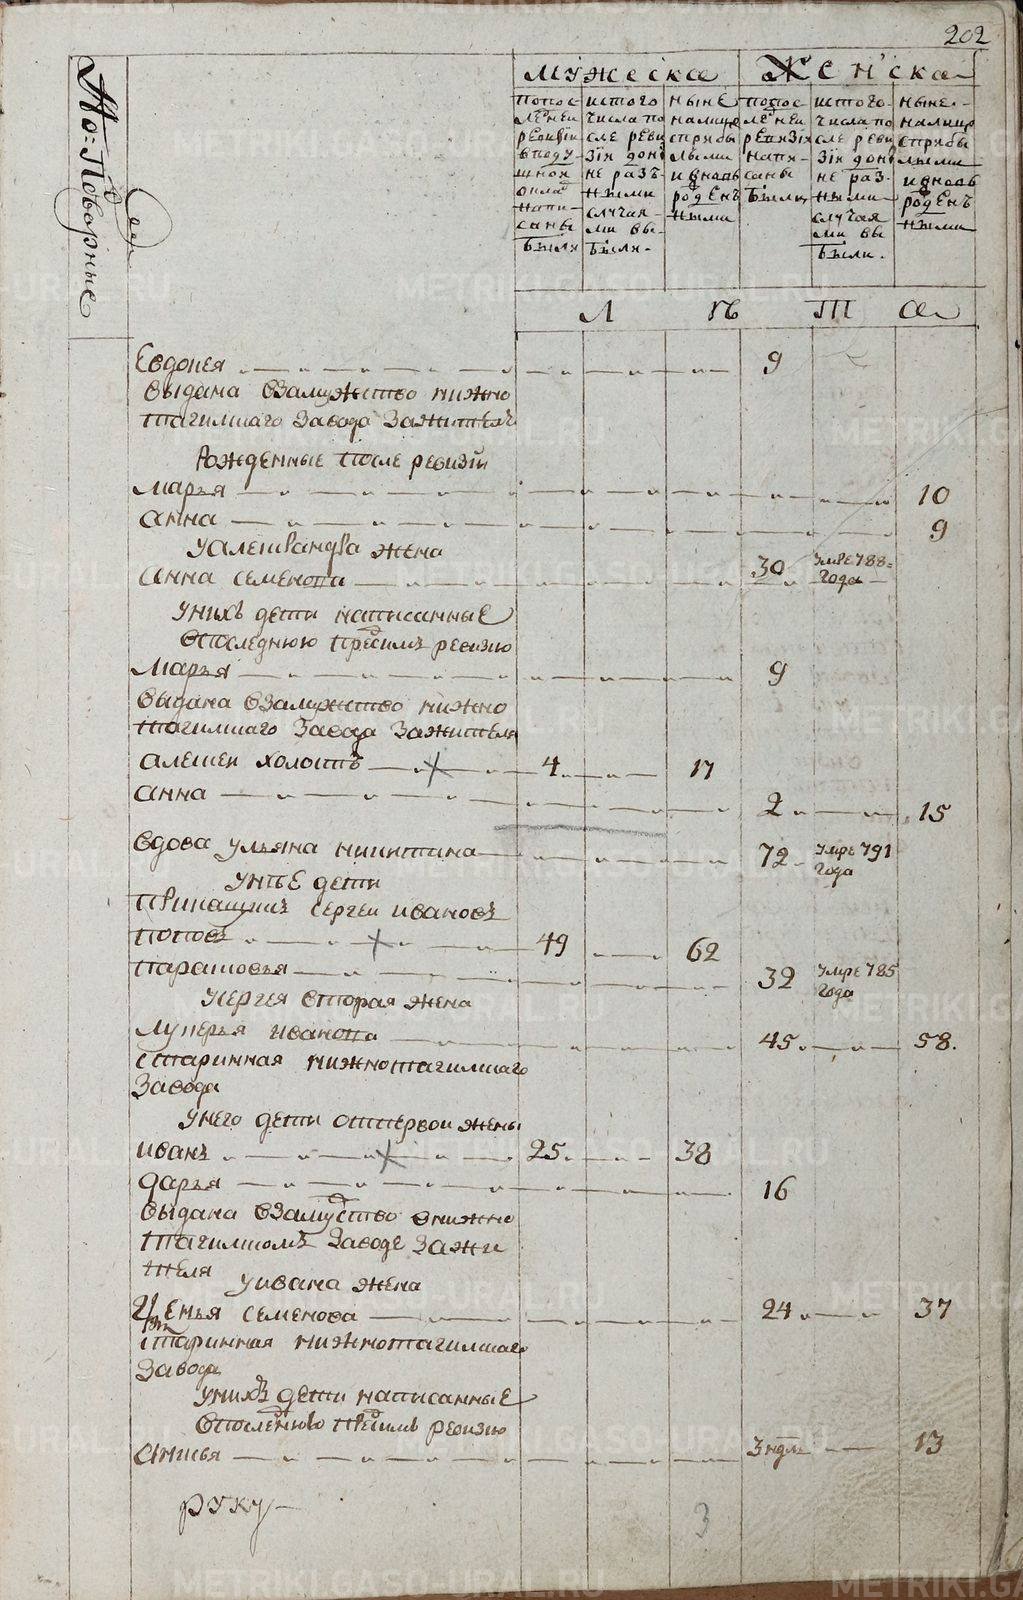 202
№ Подворные
Мужеска
Женска
попос
леней
ревизiи
вподу
шной
окладъ
напи-
саны
были
истого
числа по
сле реви
зiи до н
не разъ
ными
случая-
ми вы-
были.
ныне
налицо
сприбы
лыми
ивновь
рожденъ
ными
попос
леней
ревизiи
напи-
саны
были
истого-
числа по
сле реви
зiи до н
не раз-
ными-
случая
ми вы
были.
ныне-
налицо
сприбы
лыми
ивновь
рожденъ
ными
Л ѣ т а
Евдокея 9
выдана взамужство нижно
тагилскаго завода зажителя
Рожденные после ревизiи
Марья 10
анна 9
Уалександра жена
анна семенова 30 умре 788-
года
Унихъ дети написанные
впоследнюю предсимъ ревизию
Марья 9
выдана взамужство нижно
тагилскаго завода зажителя
алексеи холостъ 4 17
анна 2 15
вдова ульяна никитина 72 умре 791
года
Унее дети
прикащикъ сергеи ивановъ
поповъ 49 62
парасковья 32 умре 785
года
Усергея вторая жена
Лукерья иванова 45 58.
старинная нижнотагилскаго
завода
Унего дети отпервои жены
иванъ 25 38
дарья 16
выдана взамужство внижно
тагилскомъ заводе зажи
теля
Уивана жена
семенова 24 37
старинная нижнотагилскаго
завода
Унихъ дети написанные
впоследнюю предсимъ ревизию
анисья 3 ндл 13
руку
3
METRIKI.GASO-URAL.RU